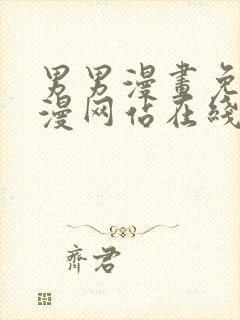 男男漫畫免
漫网站在綫
齊君